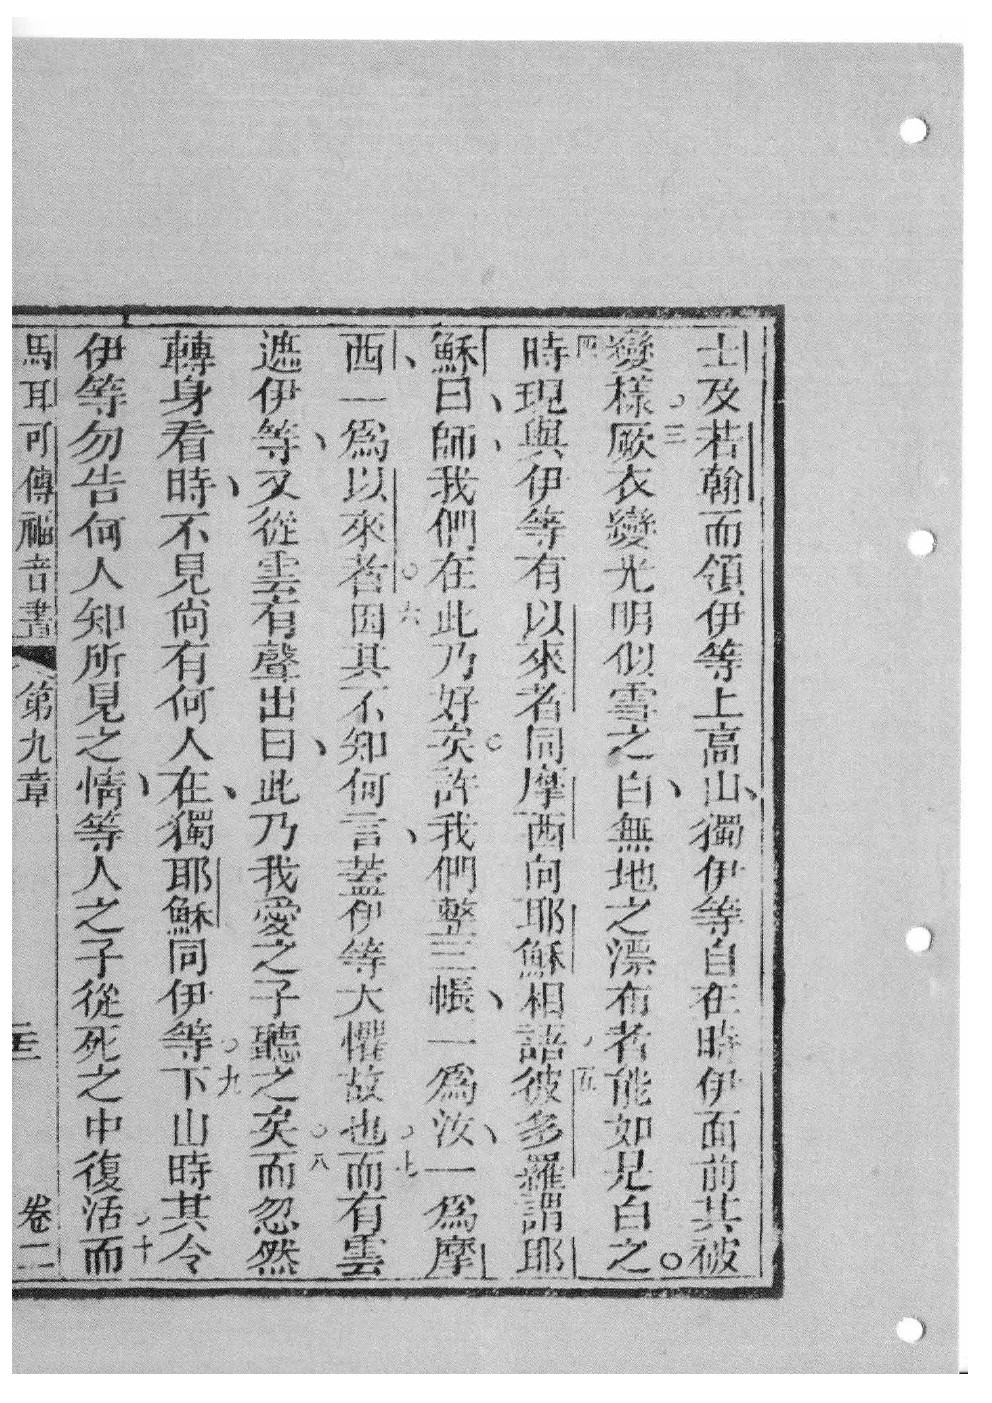 士及若翰而領伊等上高山、獨伊等自在時伊面前其被
變樣○三厥衣變光明似雪之白、無地之漂布者能如是白之。
四時現與伊等有以來者同摩西向耶穌相語○五彼多羅謂耶
穌曰、師、我們在此乃好矣○許我們整三帳、一為汝、一為摩
西、一為以來者○六因其不知何言、蓋伊等大懼故也○七而有雲
遮伊等、又從雲有聲出曰、此乃我愛之子聽之矣○八而忽然
轉身看時、不見尚有何人在、獨耶穌同伊等○九下山時其令
伊等勿告何人知所見之情、等人之子從死之中復活○十而
馬耳可傳福音書 第九章 卷二